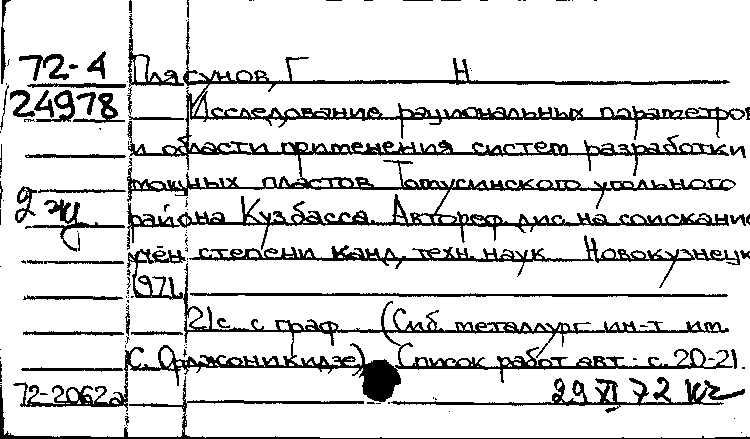 72-4 Плясунов, Г Н
24978 Исследование рациональных параметров
и области применения систем разработки
мощных пластов Томусинского угольного
2 района Кузбасса. Автореф дис. на соискание
учён степени канд. техн. наук. Новокузнецк
1971.
21с. с граф. (Сиб. металлург. ин-т им.
С. Орджоникидзе) Список работ авт.: с. 20-21.
72-2062а 29 XI 72